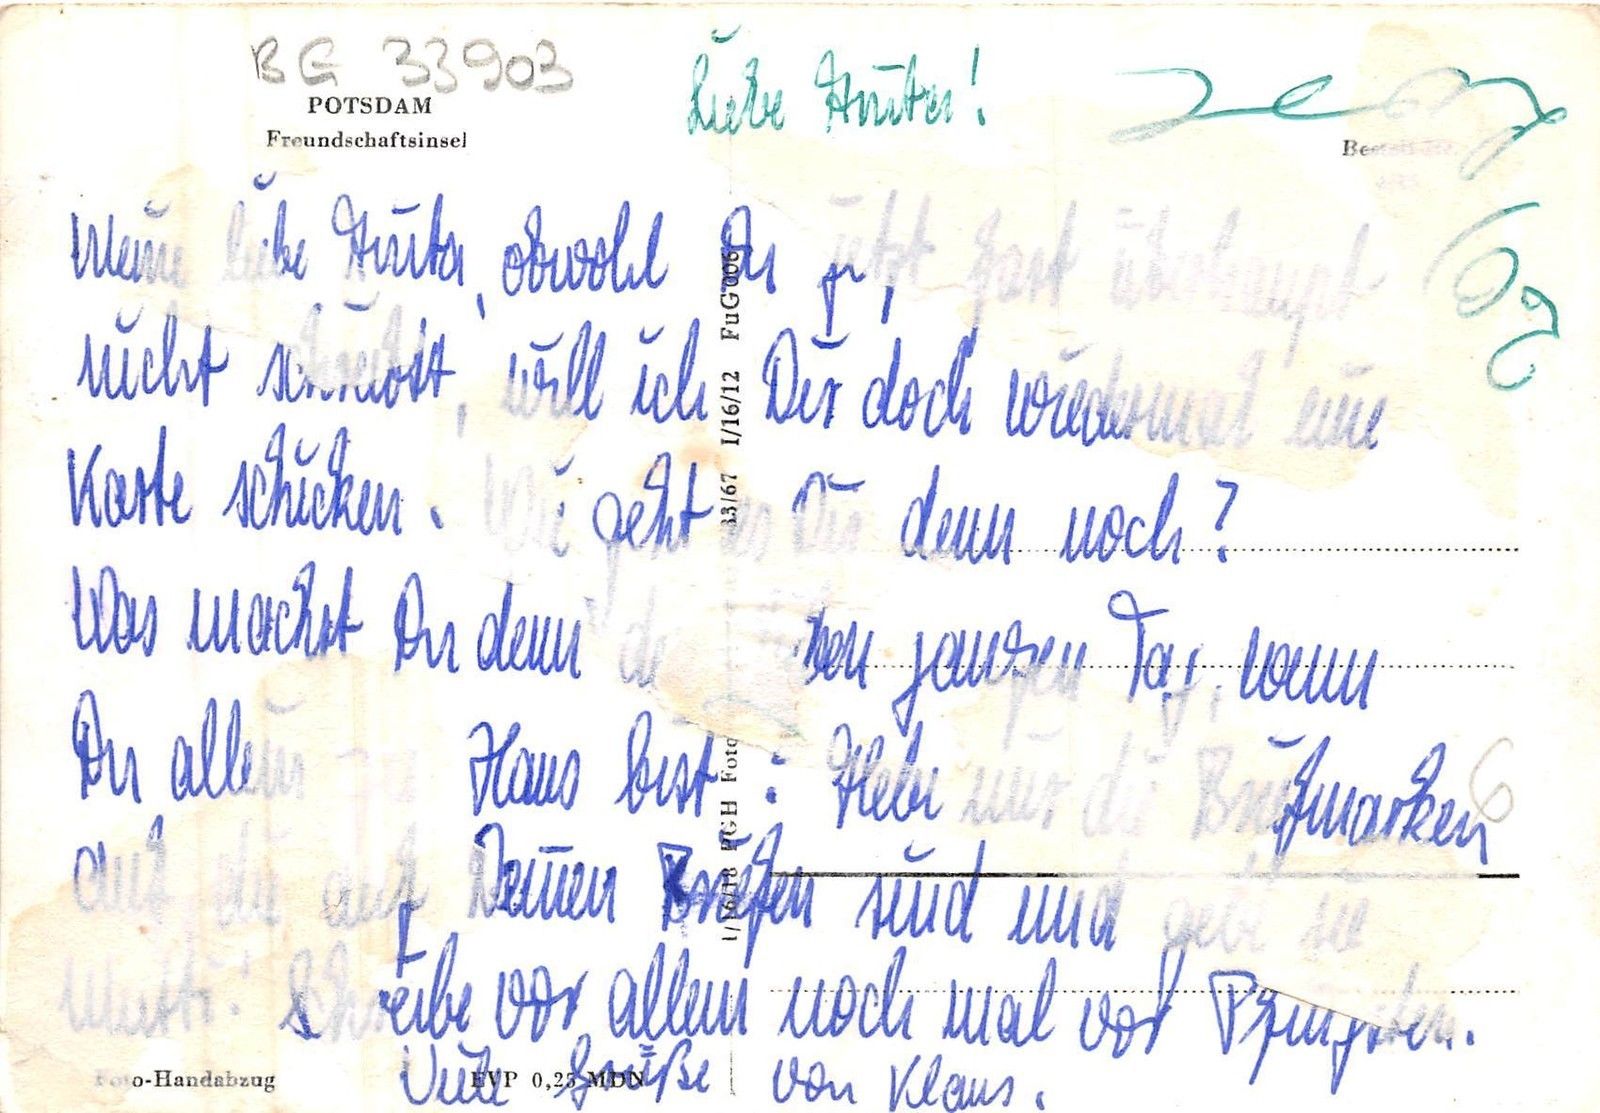 BG 33903
POTSDAM
Freundschaftsinsel
Liebe Anita!
Meine liebe Anita, obwohl Du jetzt fast überhaupt
nicht schreibst, will ich Dir doch wiedermal eine
Karte schicken. Wie geht es Dir denn noch?
Was machst Du denn den ganzen Tag, wenn
Du allein zu Haus bist? Hebe nur die Briefmarken
auf, die auf Deinen Briefen sind und gebe sie
Mutti! Schreibe vor allem noch mal vor Pfingsten.
Viele Grüße von Klaus.
Foto-Handabzug
EVP 0,25 MDN
I/16/18 PGH Foto
33/67 I/16/12 FuG006
6